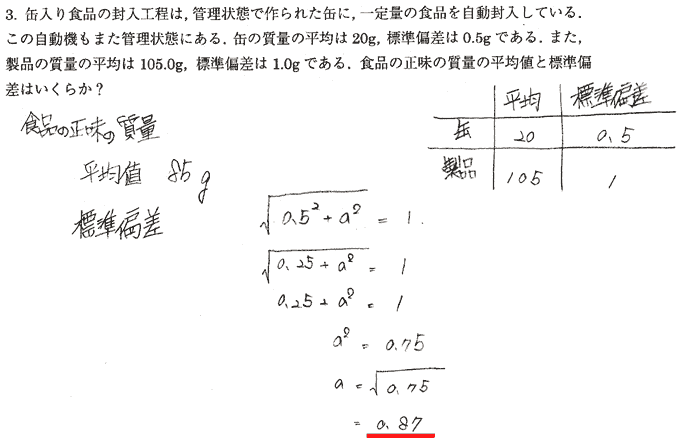 3. 缶入り食品の封入工程は, 管理状態で作られた缶に, 一定量の食品を自動封入している.
この自動機もまた管理状態にある. 缶の質量の平均は 20g, 標準偏差は 0.5g である. また,
製品の質量の平均は 105.0g, 標準偏差は 1.0g である. 食品の正味の質量の平均値と標準偏
差はいくらか？
平均 標準偏差
缶 20 0.5
製品 105 1
食品の正味の質量
平均値 85g
標準偏差
√(0.5² + a²) = 1.
√(0.25 + a²) = 1
0.25 + a² = 1
a² = 0.75
a = √0.75
= 0.87